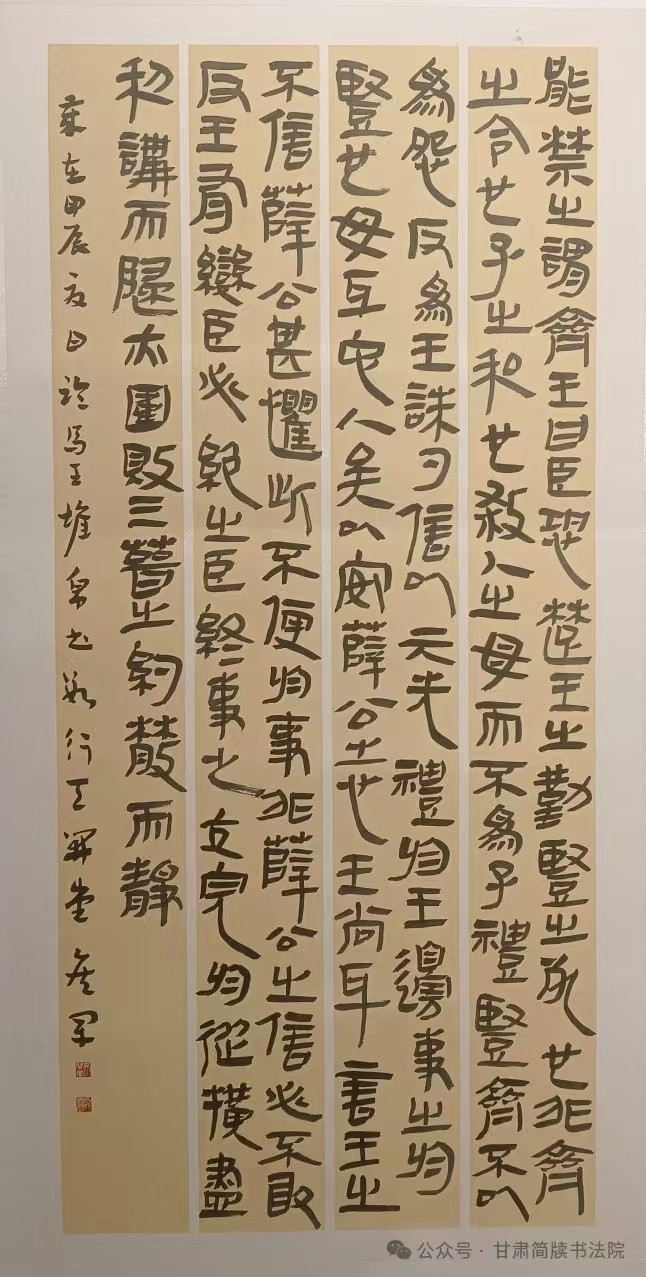 能禁之謂齊王曰臣恐楚王之勤豎之死也非齊
之令也子之私也殺人之母而不為子禮豎齊不以
為怨反為王誅勺信以亓无禮於王邊事之於
豎也毋与它人矣以安薛公之心王尚与言王之
不信薛公甚懼此不便於事非薛公之信必不敢
反王有變臣必絕之臣終事之交完於從橫盡
利講而歸亦圍敗三晉之約散而靜
歲在甲辰夏日臨馬王堆帛書數行
公众号·甘肃简牍书法院